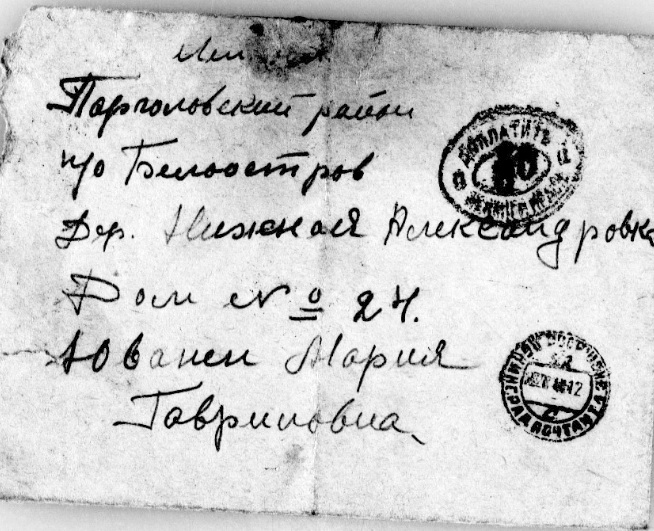 Парголовский район
п/о Белоостров
Дер. Нижная Александровка
Дом № 24.
Юванен Мария
Гавриловна
ДОПЛАТИТЬ
ЛЕНИНГРАД
ЛЕНИНГРАД ПОЧТАМТ